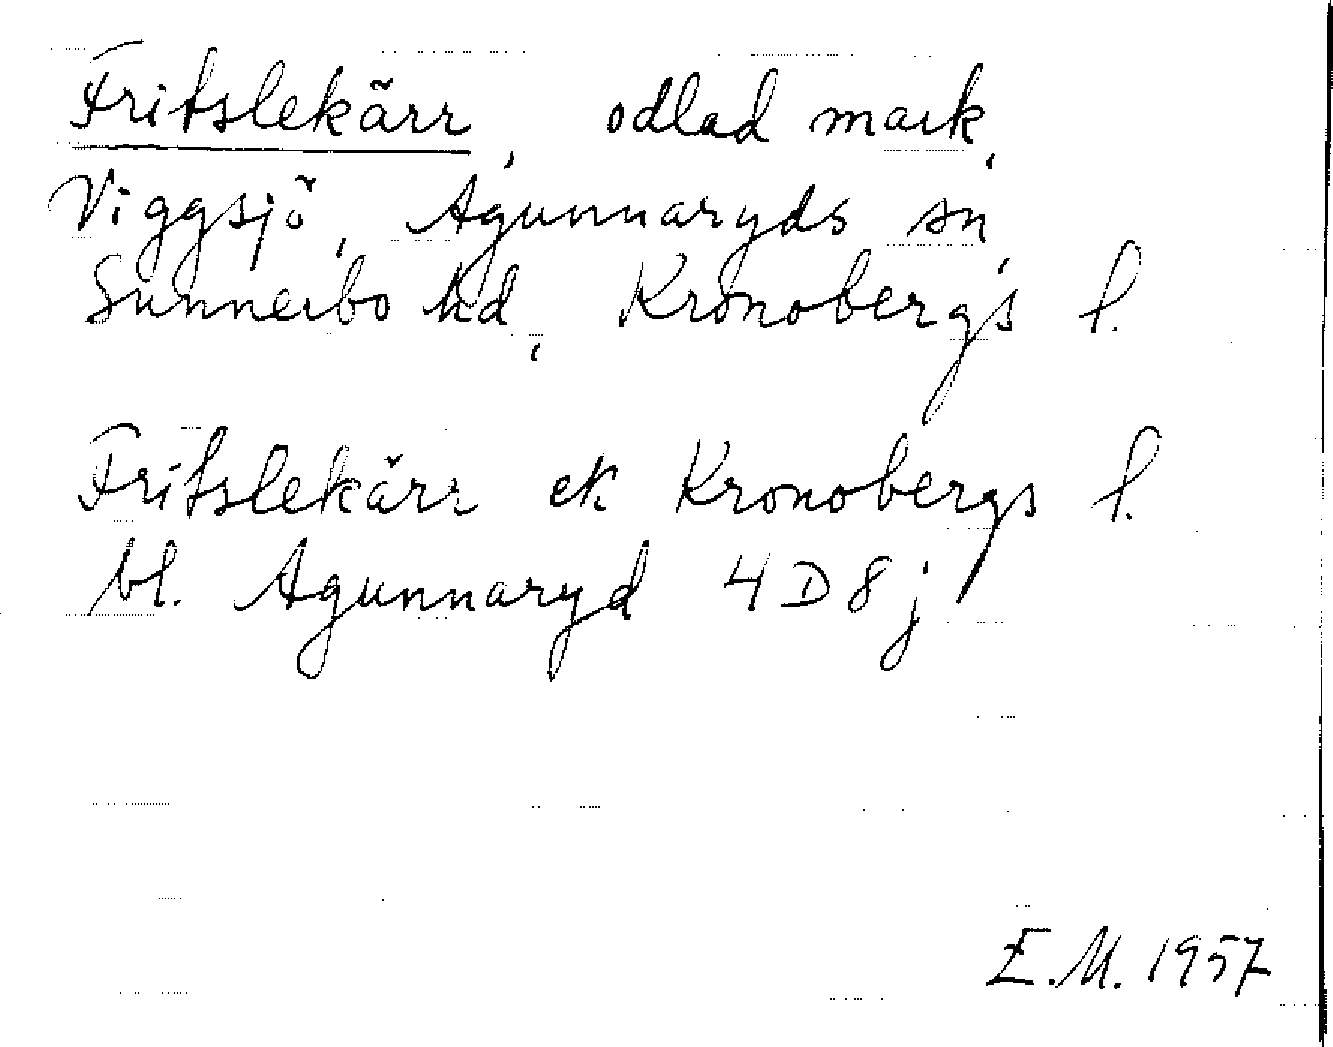 Fritslekärr, odlad mark,
Viggsjö, Agunnaryds sn,
Sunnerbo hd, Kronobergs l.
Fritslekärr ek Kronobergs l.
bl. Agunnaryd 4D8j
E.M. 1957